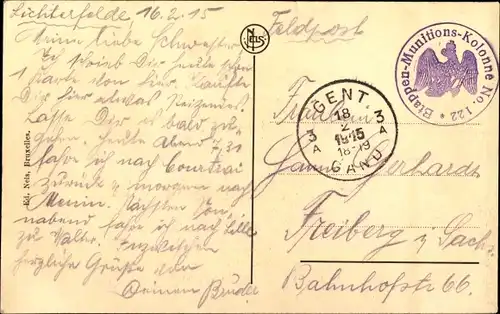 Lichterfelde 16.2.15
Meine liebe Schwester
Ich schrieb Dir heute schon
1 Karte von hier. Kaufte
Dir hier etwas Reizendes.
Lasse Dir es bald zu-
gehen. Heute Abend 7,31
fahre ich nach Courtrai
zurück u. morgen nach
Menin. Nächsten Sonn-
abend fahre ich nach Lille
zu Walter. Inzwischen
herzliche Grüße von
Deinem Bruder
Ed. Nels, Bruxelles.
NELS
Feldpost
Etappen-Munitions-Kolonne No. 122 *
GENT
18
2
1915
18-19
GAND
3 A
3 A
Fräulein
Gerhardt
Freiberg i. Sach.
Bahnhofstr 66.